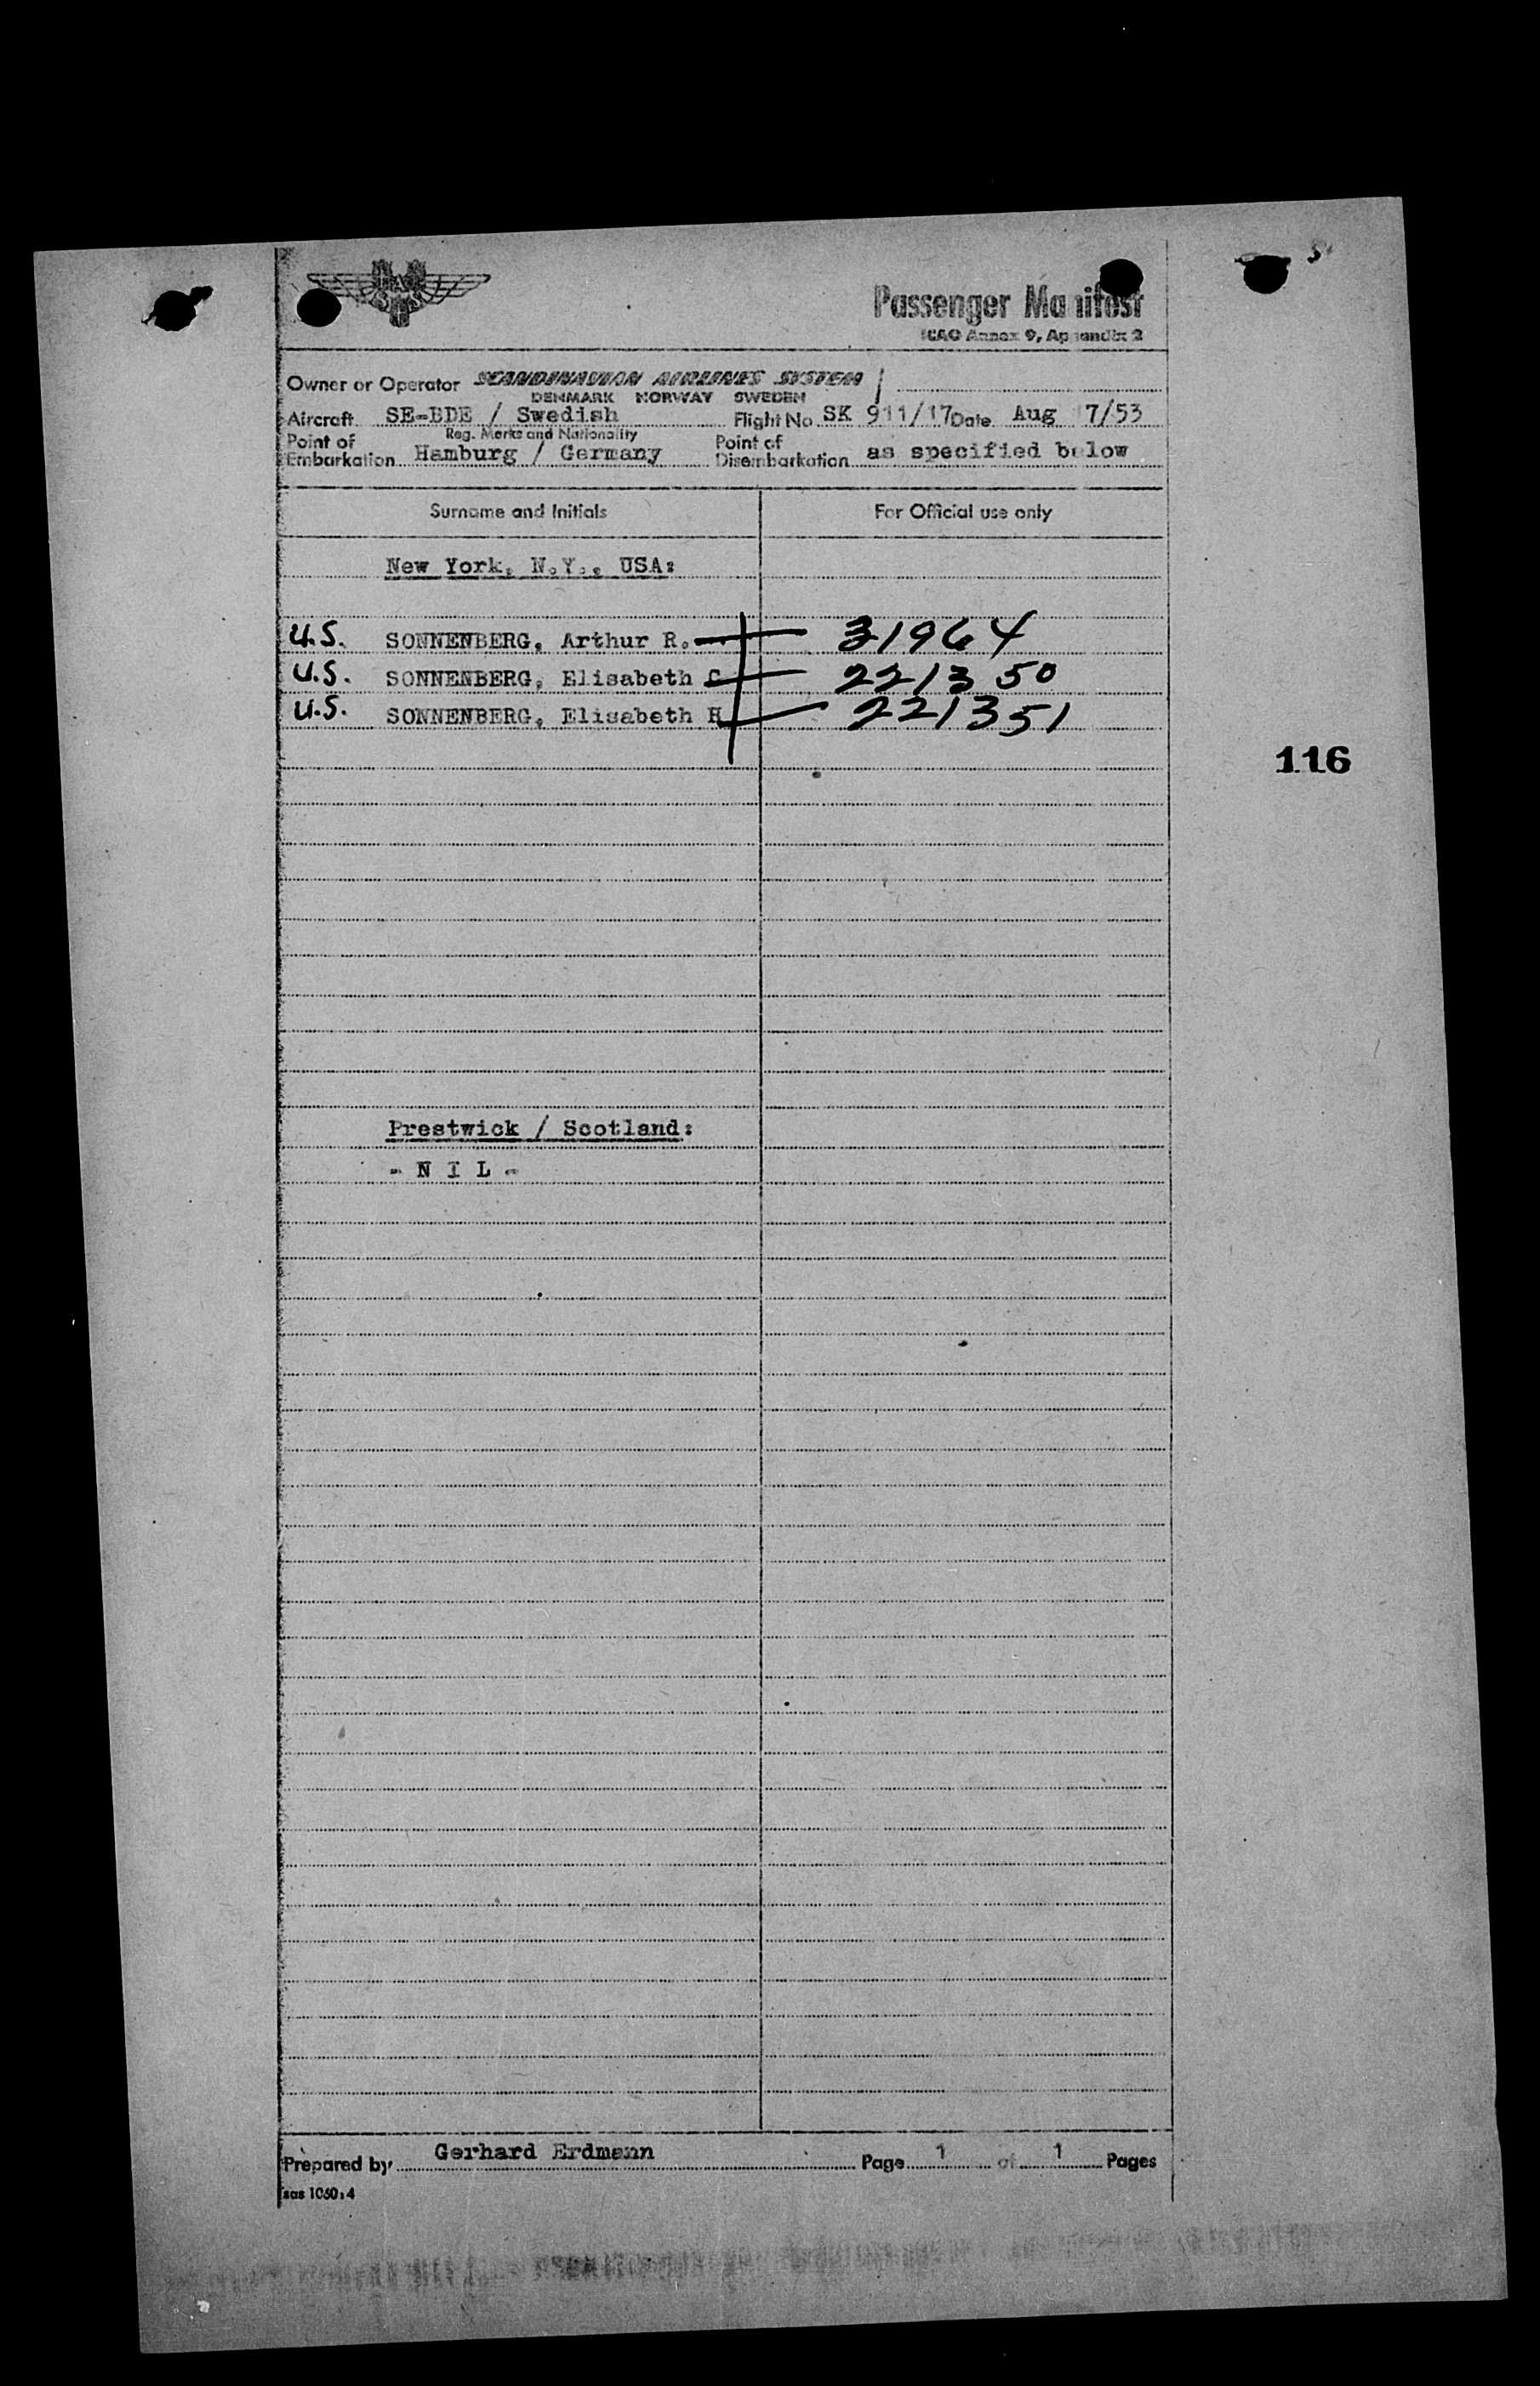 Passenger Manifest
ICAO Annex 9, Appendix 2
Owner or Operator SCANDINAVIAN AIRLINES SYSTEM
DENMARK NORWAY SWEDEN
Aircraft SE-BDE / Swedish Flight No SK 911/17 Date Aug 17/53
Reg. Marks and Nationality
Point of Embarkation Hamburg / Germany Point of Disembarkation as specified below
Surname and Initials For Official use only
New York, N.Y., USA:
U.S. SONNENBERG, Arthur R. 31964
U.S. SONNENBERG, Elisabeth C 221350
U.S. SONNENBERG, Elisabeth H 221351
116
Prestwick / Scotland:
- N I L -
Prepared by Gerhard Erdmann Page 1 of 1 Pages
sas 1060:4